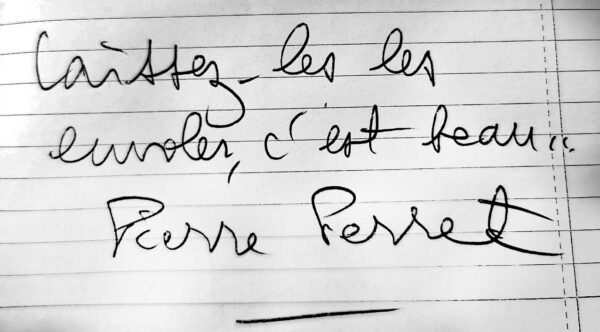 Laissez-les les
envoler, c'est beau...
Pierre Perret